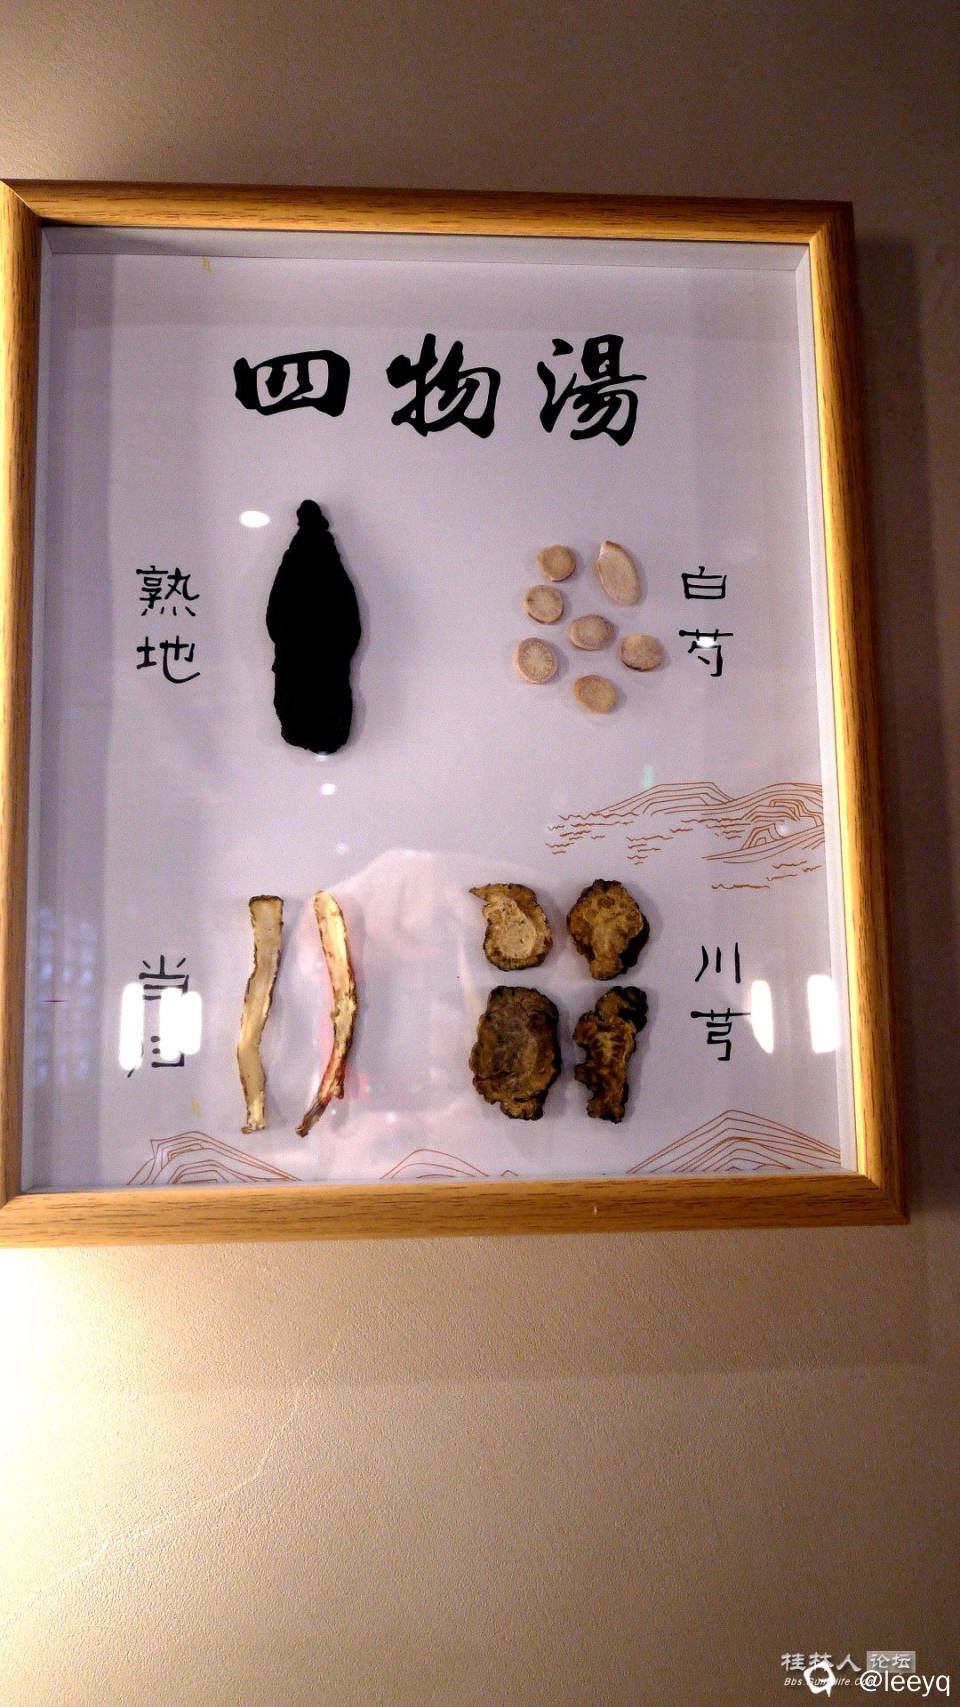 四物湯
熟地
白芍
当归
川芎
桂林人论坛
@leeyq